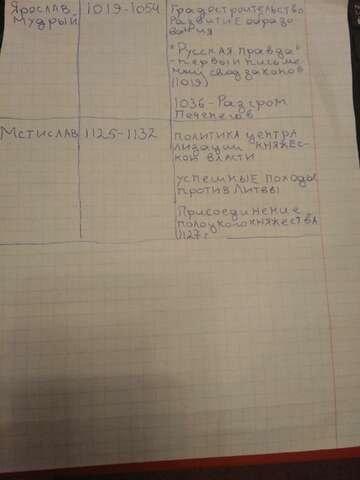 Ярослав Мудрый
1019-1054
Градостроительство
Развитие образо
вания
"Русская правда"
- первый письме
ный свод законов
(1019)
1036-Разгром
Печенегов
Мстислав
1125-1132
политика центра
лизации княжес-
кой власти
успешные походы
против Литвы
Присоединение
полоцкого княжества
1127г